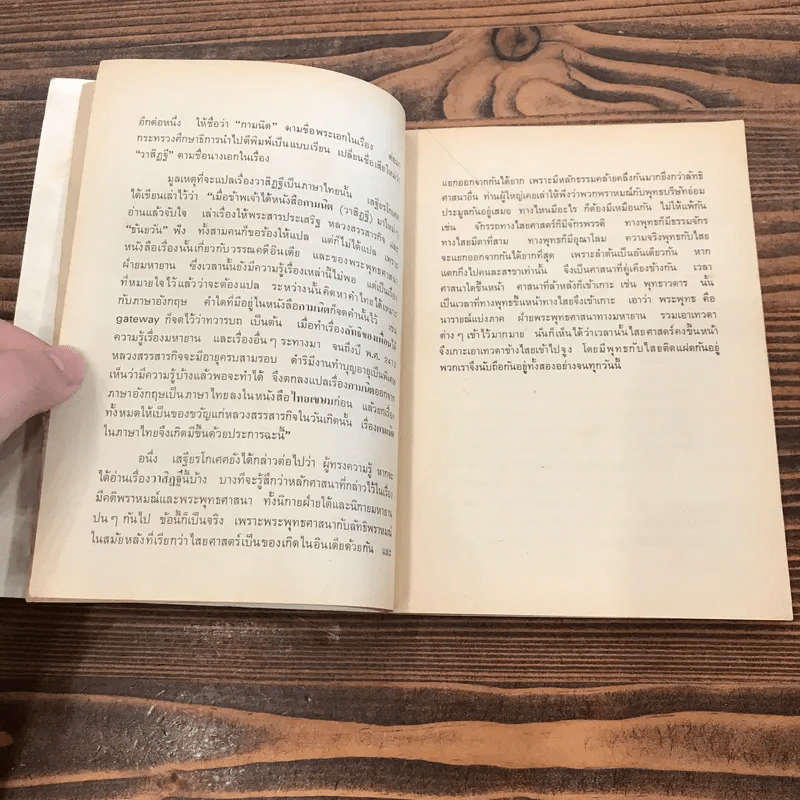 อีกต่อหนึ่ง ให้ชื่อว่า “กามนิต” ตามชื่อพระเอกในเรื่อง
กระทรวงศึกษาธิการนำไปตีพิมพ์เป็นแบบเรียน เปลี่ยนชื่อเสียใหม่ว่า
“วาสิฏฐี” ตามชื่อนางเอกในเรื่อง
มูลเหตุที่จะแปลเรื่องวาสิฏฐีเป็นภาษาไทยนั้น เสฐียรโกเศศ
ได้เขียนเล่าไว้ว่า “เมื่อข้าพเจ้าได้หนังสือกามนิต (วาสิฏฐี) มาใหม่ๆ
อ่านแล้วจับใจ เล่าเรื่องให้พระสารประเสริฐ หลวงสรรสารกิจ และ
“ยันยวัน” ฟัง ทั้งสามคนก็ขอร้องให้แปล แต่ก็ไม่ได้แปล เพราะ
หนังสือเรื่องนั้นเกี่ยวกับวรรณคดีอินเดีย และของพระพุทธศาสนา
ฝ่ายมหายาน ซึ่งเวลานั้นยังมีความรู้เรื่องเหล่านี้ไม่พอ แต่เป็นเรื่อง
ที่หมายใจไว้แล้วว่าจะต้องแปล ระหว่างนั้นคิดหาคำไทยให้เหมาะ
กับภาษาอังกฤษ คำใดที่มีอยู่ในหนังสือกามนิตก็จดคำนั้นไว้ เช่น
gateway ก็จดไว้ว่าทวารบถ เป็นต้น เมื่อทำเรื่องลัทธิของเพื่อนได้
ความรู้เรื่องมหายาน และเรื่องอื่นๆ ระทางมา จนถึงปี พ.ศ. 2473
หลวงสรรสารกิจจะมีอายุครบสามรอบ ดำริมีงานทำบุญอายุเป็นพิเศษ
เห็นว่ามีความรู้บ้างแล้วพอจะทำได้ จึงตกลงแปลเรื่องกามนิตออกจาก
ภาษาอังกฤษเป็นภาษาไทยลงในหนังสือไทยเขษมก่อน แล้วยกเรื่อง
ทั้งหมดให้เป็นของขวัญแก่หลวงสรรสารกิจในวันเกิดนั้น เรื่องกามนิต
ในภาษาไทยจึงเกิดมีขึ้นด้วยประการฉะนี้”
อนึ่ง เสฐียรโกเศศยังได้กล่าวต่อไปว่า ผู้ทรงความรู้ หากจะ
ได้อ่านเรื่องวาสิฏฐีนี้บ้าง บางทีจะรู้สึกว่าหลักศาสนาที่กล่าวไว้ในเรื่อง
มีคติพราหมณ์และพระพุทธศาสนา ทั้งนิกายฝ่ายใต้และนิกายมหายาน
ปนๆ กันไป ข้อนี้ก็เป็นจริง เพราะพระพุทธศาสนากับลัทธิพราหมณ์
ในสมัยหลังที่เรียกว่าไสยศาสตร์เป็นของเกิดในอินเดียด้วยกัน และ
แยกออกจากกันได้ยาก เพราะมีหลักธรรมคล้ายคลึงกันมากยิ่งกว่าลัทธิ
ศาสนาอื่น ท่านผู้ใหญ่เคยเล่าให้ฟังว่าพวกพราหมณ์กับพุทธบริษัทย่อม
ประมูลกันอยู่เสมอ ทางไหนมีอะไร ก็ต้องมีเหมือนกัน ไม่ให้แพ้กัน
เช่น จักรรถทางไสยศาสตร์ก็มีจักรพรรดิ ทางพุทธก็มีธรรมจักร
ทางไสยมีตาที่สาม ทางพุทธก็มีอุณาโลม ความจริงพุทธกับไสย
จะแยกออกจากกันได้ยากที่สุด เพราะลำต้นเป็นอันเดียวกัน หาก
แตกกิ่งไปคนละสาขาเท่านั้น จึงเป็นศาสนาที่คู่เคียงข้างกัน เวลา
ศาสนาใดขึ้นหน้า ศาสนาที่ล้าหลังก็เข้าเกาะ เช่น พุทธาวตาร นั้น
เป็นเวลาที่ทางพุทธขึ้นหน้าทางไสยจึงเข้าเกาะ เอาว่า พระพุทธ คือ
นารายณ์แบ่งภาค ฝ่ายพระพุทธศาสนาทางมหายาน รวมเอาเทวดา
ต่างๆ เข้าไว้มากมาย นั่นก็เห็นได้ว่าเวลานั้นไสยศาสตร์คงขึ้นหน้า
จึงเกาะเอาเทวดาข้างไสยเข้าไปจูง โดยมีพุทธกับไสยติดแฝดกันอยู่
พวกเราจึงนับถือกันอยู่ทั้งสองอย่างจนทุกวันนี้